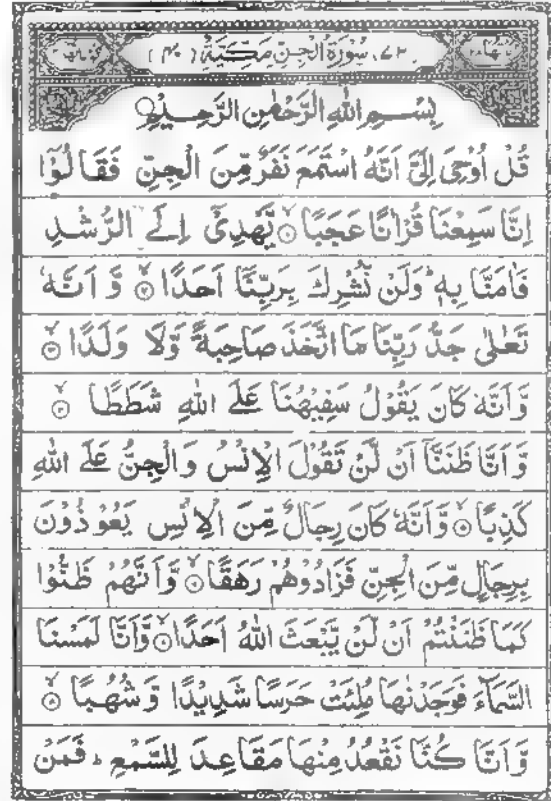 ٧٢، سُوْرَةُ الْجِنِّ مَكِّيَّةٌ (٤٠)
بِسْــمِ اللهِ الرَّحْمٰنِ الرَّحِــيْمِ
قُلْ اُوْحِیَ اِلَیَّ اَنَّهُ اسْتَمَعَ نَفَرٌ مِّنَ الْجِنِّ فَقَالُوْۤا
اِنَّا سَمِعْنَا قُرْاٰنًا عَجَبًا ۙ۝١ یَّهْدِیْۤ اِلَی الرُّشْدِ
فَاٰمَنَّا بِهٖ ؕ وَلَنْ نُّشْرِكَ بِرَبِّنَاۤ اَحَدًا ۙ۝٢ وَّ اَنَّهٗ
تَعٰلٰی جَدُّ رَبِّنَا مَا اتَّخَذَ صَاحِبَةً وَّلَا وَلَدًا ۙ۝٣
وَّاَنَّهٗ كَانَ یَقُوْلُ سَفِیْهُنَا عَلَی اللهِ شَطَطًا ۙ۝٤
وَّ اَنَّا ظَنَنَّاۤ اَنْ لَّنْ تَقُوْلَ الْاِنْسُ وَالْجِنُّ عَلَی اللهِ
كَذِبًا ۙ۝٥ وَّاَنَّهٗ كَانَ رِجَالٌ مِّنَ الْاِنْسِ یَعُوْذُوْنَ
بِرِجَالٍ مِّنَ الْجِنِّ فَزَادُوْهُمْ رَهَقًا ۙ۝٦ وَّاَنَّهُمْ ظَنُّوْا
كَمَا ظَنَنْتُمْ اَنْ لَّنْ یَّبْعَثَ اللهُ اَحَدًا ۙ۝٧ وَّاَنَّا لَمَسْنَا
السَّمَآءَ فَوَجَدْنٰهَا مُلِئَتْ حَرَسًا شَدِیْدًا وَّشُهُبًا ۙ۝٨
وَّاَنَّا كُنَّا نَقْعُدُ مِنْهَا مَقَاعِدَ لِلسَّمْعِ ؕ فَمَنْ